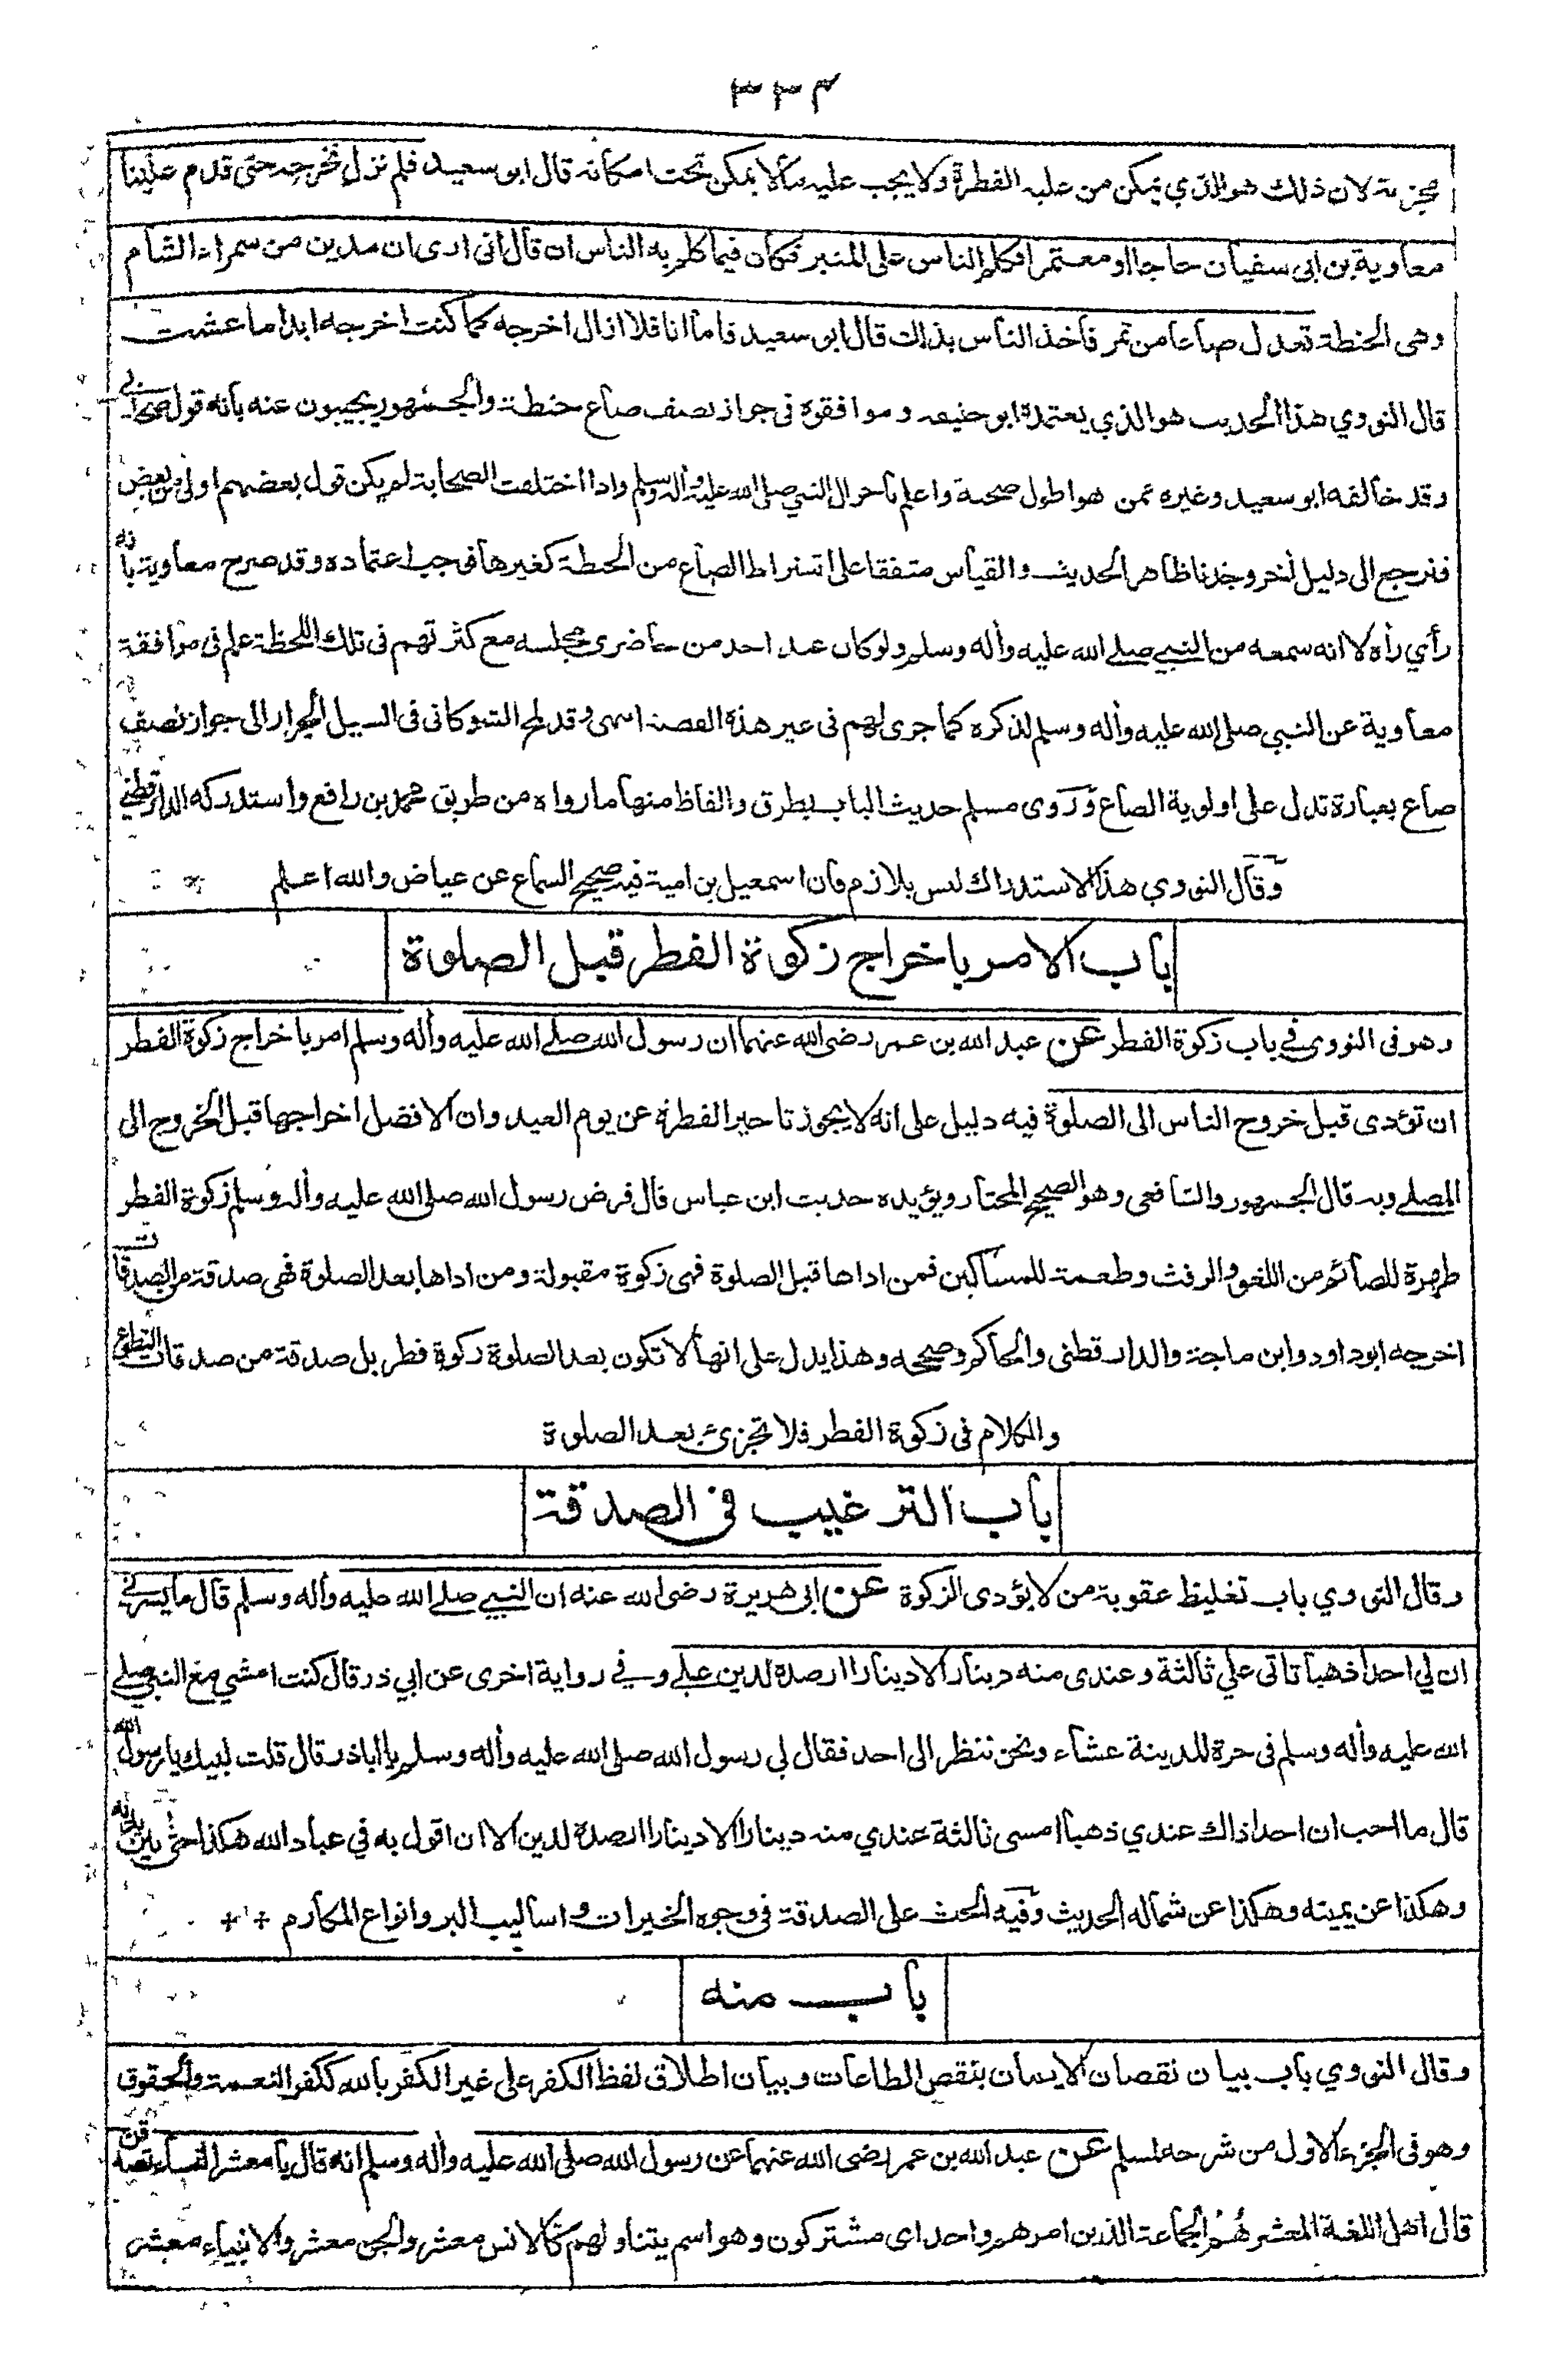 ٣٣٤
مجزية لان ذلك هو الذي يمكن من عليه الفطرة ولا يجب عليه مالا يمكن تحت امكانه قال ابو سعيد فلم نزل نخرجه حتى قدم علينا
معاوية بن ابى سفيان حاجا او معتمرا فكلم الناس على المنبر فكان فيما كلم به الناس ان قال انى ارى ان مدين من سمراء الشام
وهى الحنطة تعدل صاعا من تمر فاخذ الناس بذلك قال ابو سعيد فاما انا فلا ازال اخرجه كما كنت اخرجه ابدا ما عشت
قال النووي هذا الحديث هو الذي يعتمده ابو حنيفه وموافقوه فى جواز نصف صاع حنطة والجمهور يجيبون عنه بانه قول صحابى
وقد خالفه ابو سعيد وغيره ممن هو اطول صحبة واعلم باحوال النبي صلى الله عليه وأله وسلم واذا اختلفت الصحابة لم يكن قول بعضهم اولى من بعض
فنرجع الى دليل أخر وجدنا ظاهر الحديث والقياس متفقا على اشتراط الصاع من الحنطة كغيرها فوجب اعتماده وقد صرح معاوية بانه
رأي رأه لا انه سمعه من النبي صلى الله عليه وأله وسلم ولو كان عند احد من حاضرى مجلسه مع كثرتهم فى تلك اللحظة علم فى موافقة
معاوية عن النبي صلى الله عليه وأله وسلم لذكره كما جرى لهم فى غير هذه القصة انتهى وقد لمح الشوكانى فى السيل الجرار الى جواز نصف
صاع بعبارة تدل على اولوية الصاع وروى مسلم حديث الباب بطرق والفاظ منها ما رواه من طريق محمد بن رافع واستدركه الدارقطنى
وقال النووي هذا الاستدراك ليس بلازم فان اسمعيل بن امية فيه صحيح السماع عن عياض والله اعلم
باب الامر باخراج زكوة الفطر قبل الصلوة
وهو فى النووى في باب زكوة الفطر عن عبد الله بن عمر رضى الله عنهما ان رسول الله صلى الله عليه وأله وسلم امر باخراج زكوة الفطر
ان تؤدى قبل خروج الناس الى الصلوة فيه دليل على انه لا يجوز تاخير الفطرة عن يوم العيد وان الافضل اخراجها قبل الخروج الى
المصلى وبه قال الجمهور والشافعى وهو الصحيح المختار ويؤيده حديث ابن عباس قال فرض رسول الله صلى الله عليه وأله وسلم زكوة الفطر
طهرة للصائم من اللغو والرفث وطعمة للمساكين فمن اداها قبل الصلوة فهى زكوة مقبولة ومن اداها بعد الصلوة فهى صدقة من الصدقات
اخرجه ابو داود وابن ماجة والدارقطنى والحاكم وصححه وهذا يدل على انها لا تكون بعد الصلوة زكوة فطر بل صدقة من صدقات التطوع
والكلام فى زكوة الفطر فلا تجزئ بعد الصلوة
باب الترغيب فى الصدقة
وقال النووي باب تغليظ عقوبة من لا يؤدى الزكوة عن ابى هريرة رضى الله عنه ان النبي صلى الله عليه وأله وسلم قال ما يسرني
ان لي احدا ذهبا تاتى علي ثالثة وعندى منه دينار الا دينارا ارصده لدين علي وفي رواية اخرى عن ابي ذر قال كنت امشي مع النبي صلى
الله عليه وأله وسلم فى حرة المدينة عشاء ونحن ننظر الى احد فقال لي رسول الله صلى الله عليه وأله وسلم يا اباذر قال قلت لبيك يا رسول الله
قال ما احب ان احدا ذاك عندي ذهبا امسى ثالثة عندي منه دينار الا دينارا ارصده لدين الا ان اقول به في عباد الله هكذا حثى بين يديه
وهكذا عن يمينه وهكذا عن شماله الحديث وفيه الحث على الصدقة فى وجوه الخيرات واساليب البر وانواع المكارم
باب منه
وقال النووي باب بيان نقصان الايمان بنقص الطاعات وبيان اطلاق لفظ الكفر على غير الكفر بالله ككفر النعمة والحقوق
وهو فى الجزء الاول من شرحه لمسلم عن عبد الله بن عمر رضى الله عنهما عن رسول الله صلى الله عليه وأله وسلم انه قال يا معشر النساء تصدقن
قال اهل اللغة المعشر هُمُ الجماعة الذين امرهم واحد اى مشتركون وهو اسم يتناولهم كالانس معشر والجن معشر والانبياء معشر